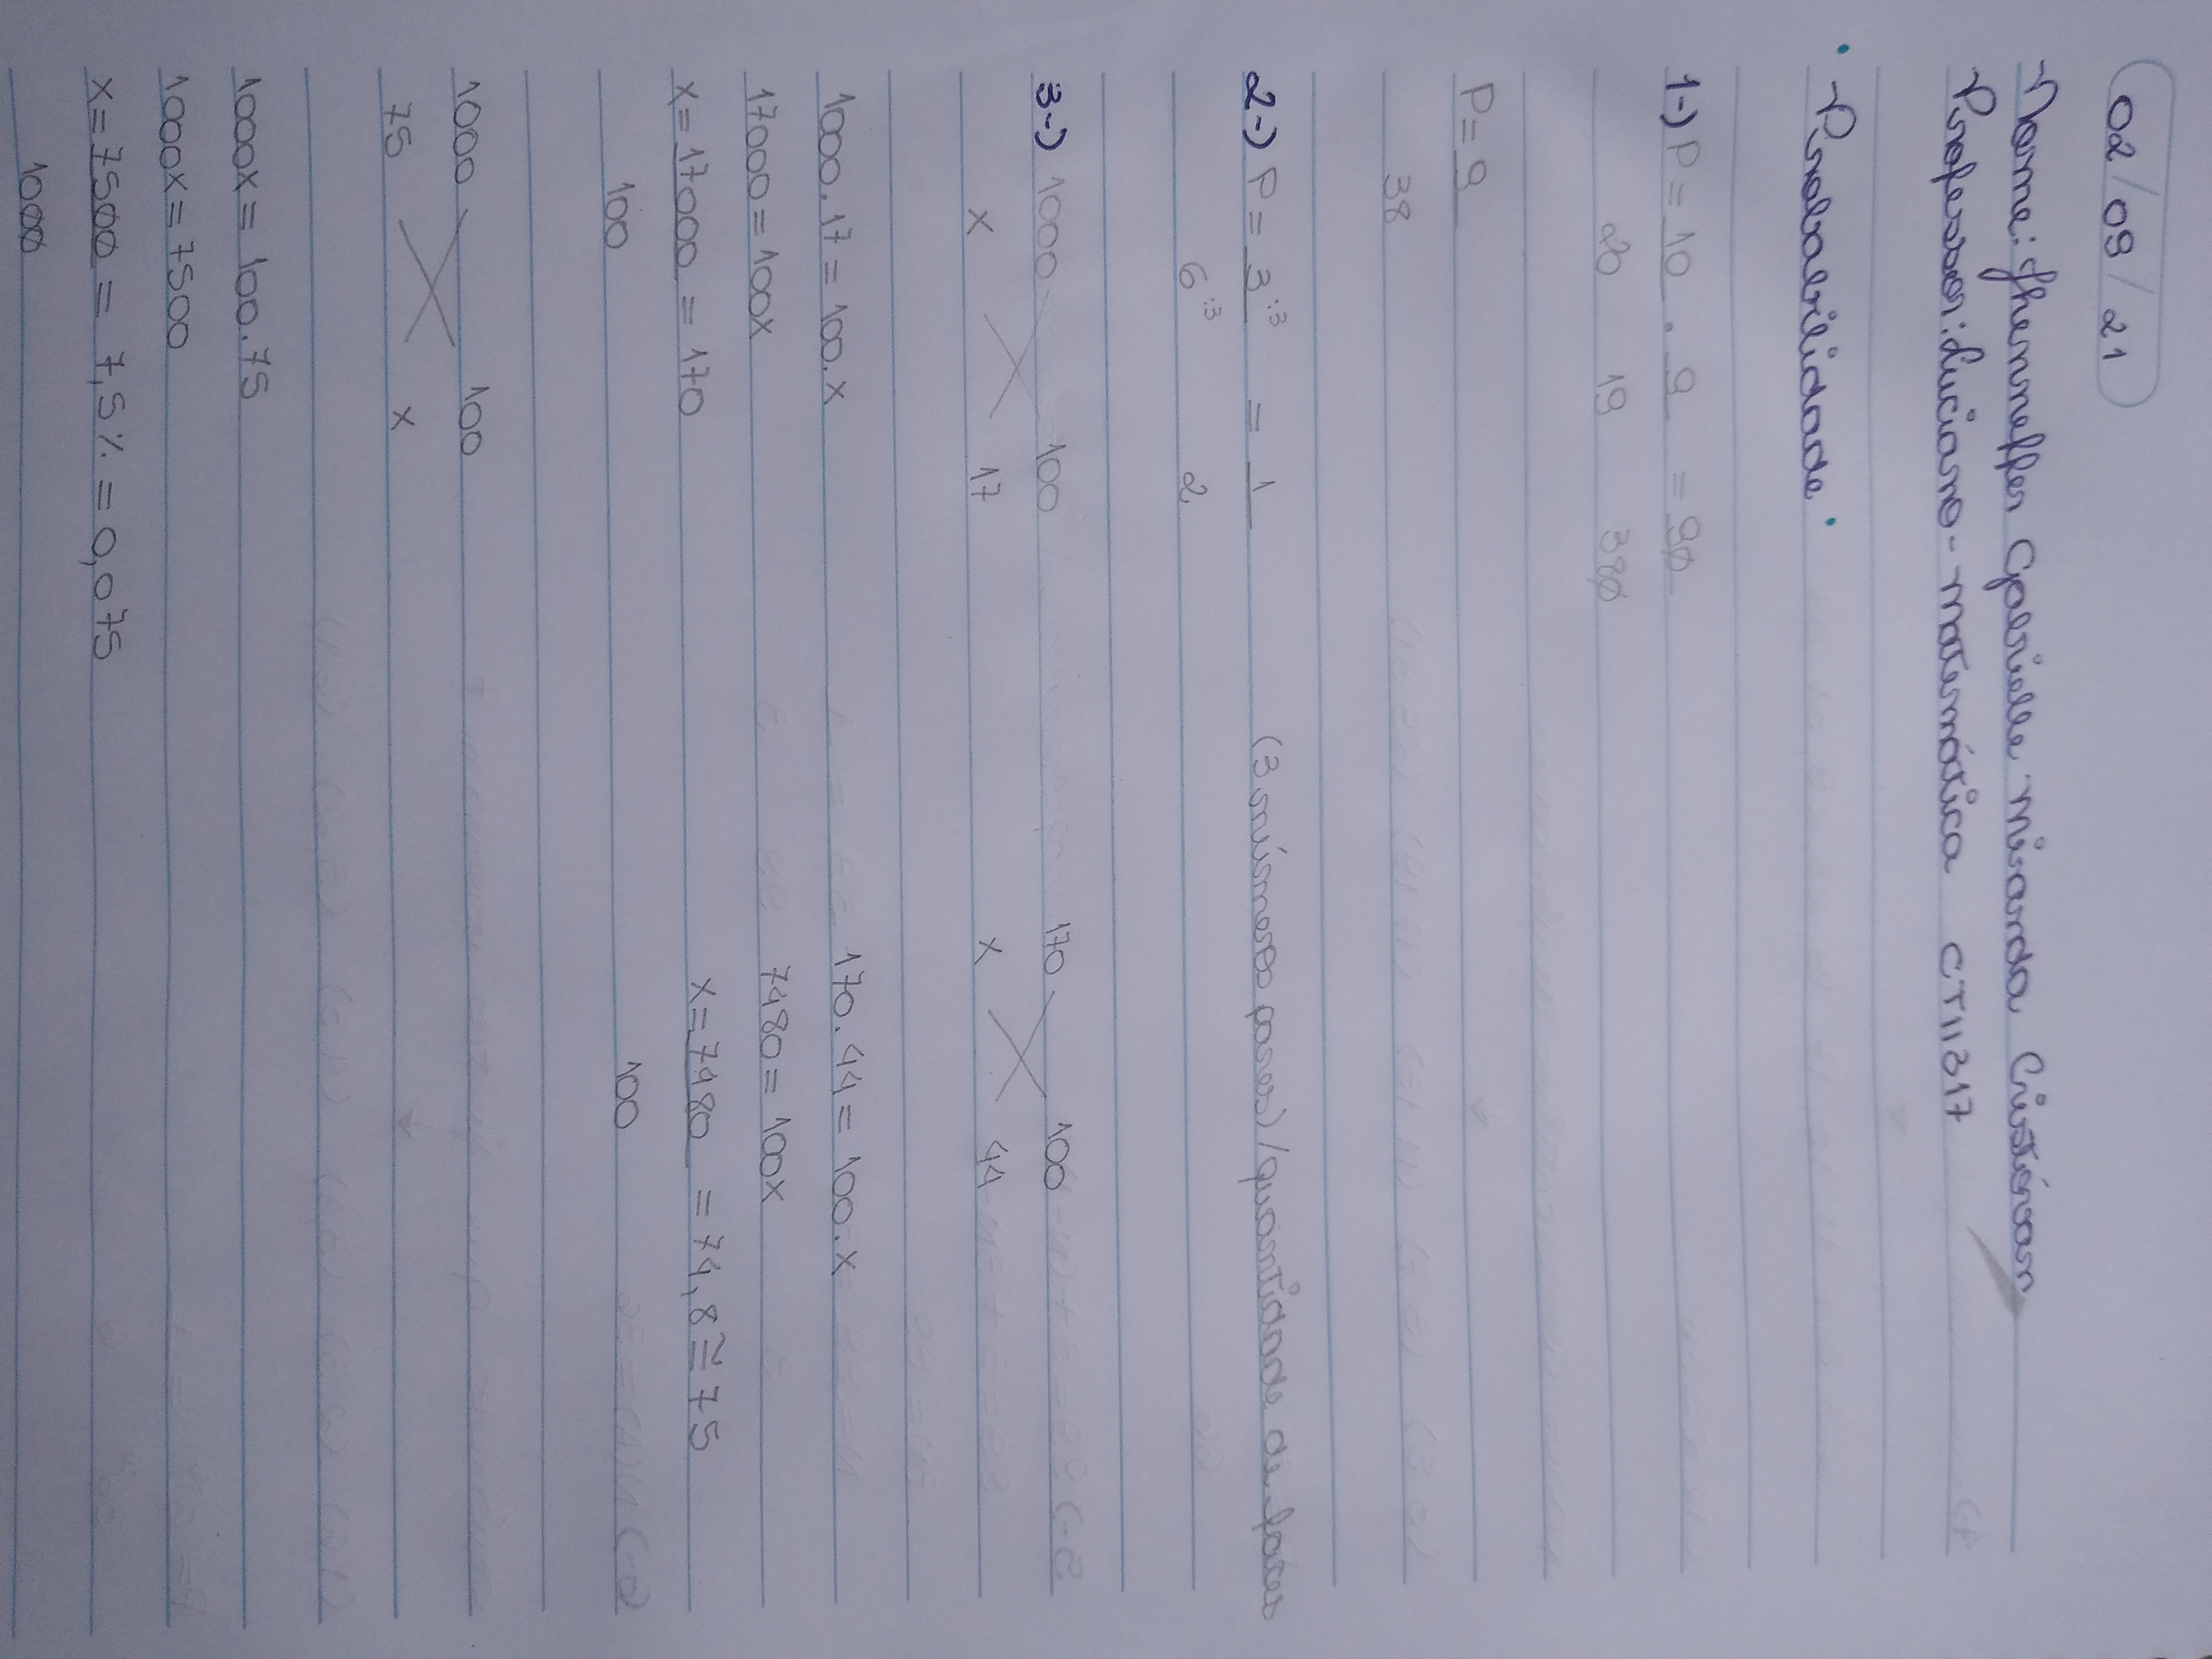 02/09/21
Nome: Jhenneffer Gabrielle Miranda Cristóvam
Professor: Luciano - matemática CTII317
Probabilidade
1-) P = 10 . 9 = 90
20 19 380
P = 9
38
2-) P = 3 :3 = 1 (3 números pares) / quantidade de faces
6 :3 2
3-) 1000 100 170 100
x 17 x 44
1000.17 = 100.x 170.44 = 100.x
17000 = 100x 7480 = 100x
x = 17000 = 170 x = 7480 = 74,8 ≅ 75
100 100
1000 100
75 x
1000x = 100.75
1000x = 7500
x = 7500 = 7,5% = 0,075
1000